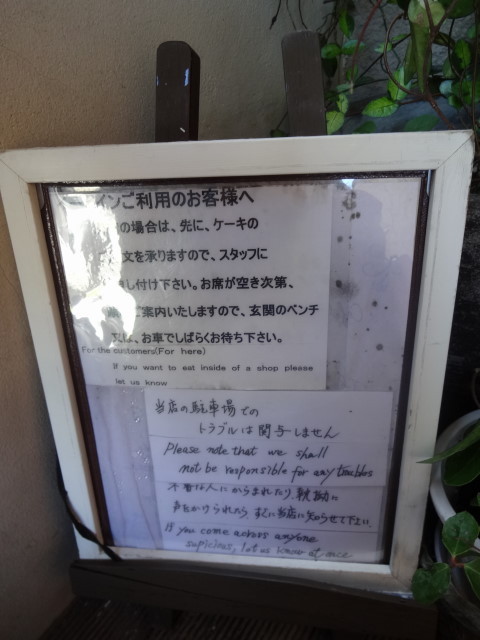 インご利用のお客様へ
の場合は、先に、ケーキの
文を承りますので、スタッフに
し付け下さい。お席が空き次第、
ご案内いたしますので、玄関のベンチ
又は、お車でしばらくお待ち下さい。
For the customers(For here)
If you want to eat inside of a shop please
let us know
当店の駐車場での
トラブルは関与しません
Please note that we shall
not be responsible for any troubles
不審な人にからまれたり、執拗に
声をかけられたら、すぐに当店に知らせて下さい。
If you come across anyone
supicious, let us know at once